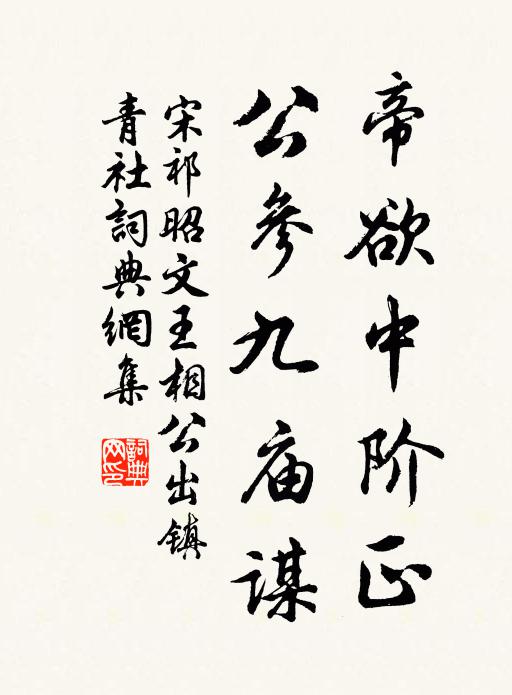 帝欲中阶正
公参九庙谋
宋祁昭文王相公出镇
青社詞典網集
詞典网印